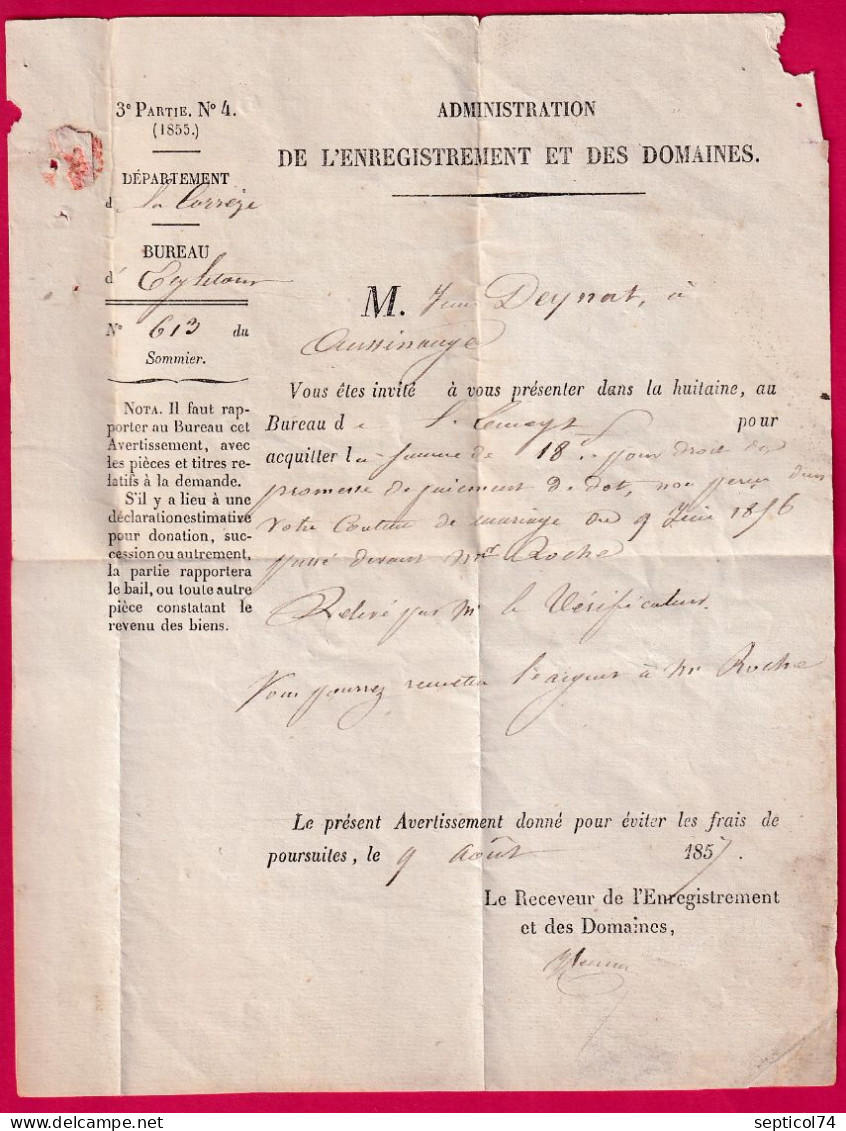 3e PARTIE. No 4.
(1855.)
DÉPARTEMENT
de la Corrèze
BUREAU
d'
No 613 du
Sommier.
NOTA. Il faut rap-
porter au Bureau cet
Avertissement, avec
les pièces et titres re-
latifs à la demande.
S'il y a lieu à une
déclaration estimative
pour donation, suc-
cession ou autrement,
la partie rapportera
le bail, ou toute autre
pièce constatant le
revenu des biens.
ADMINISTRATION
DE L'ENREGISTREMENT ET DES DOMAINES.
M. Jean Deynat, à
Vous êtes invité à vous présenter dans la huitaine, au
Bureau de pour
acquitter la somme de 18 pour droit de
promesse de paiement de dot, non perçu dans
votre Contrat de mariage du 9 Juin 1856
passé devant Me Roche
Relevé par Mr le Vérificateur.
Vous pourrez remettre l'argent à Mr Roche
Le présent Avertissement donné pour éviter les frais de
poursuites, le 9 août 1857.
Le Receveur de l'Enregistrement
et des Domaines,
septicol74